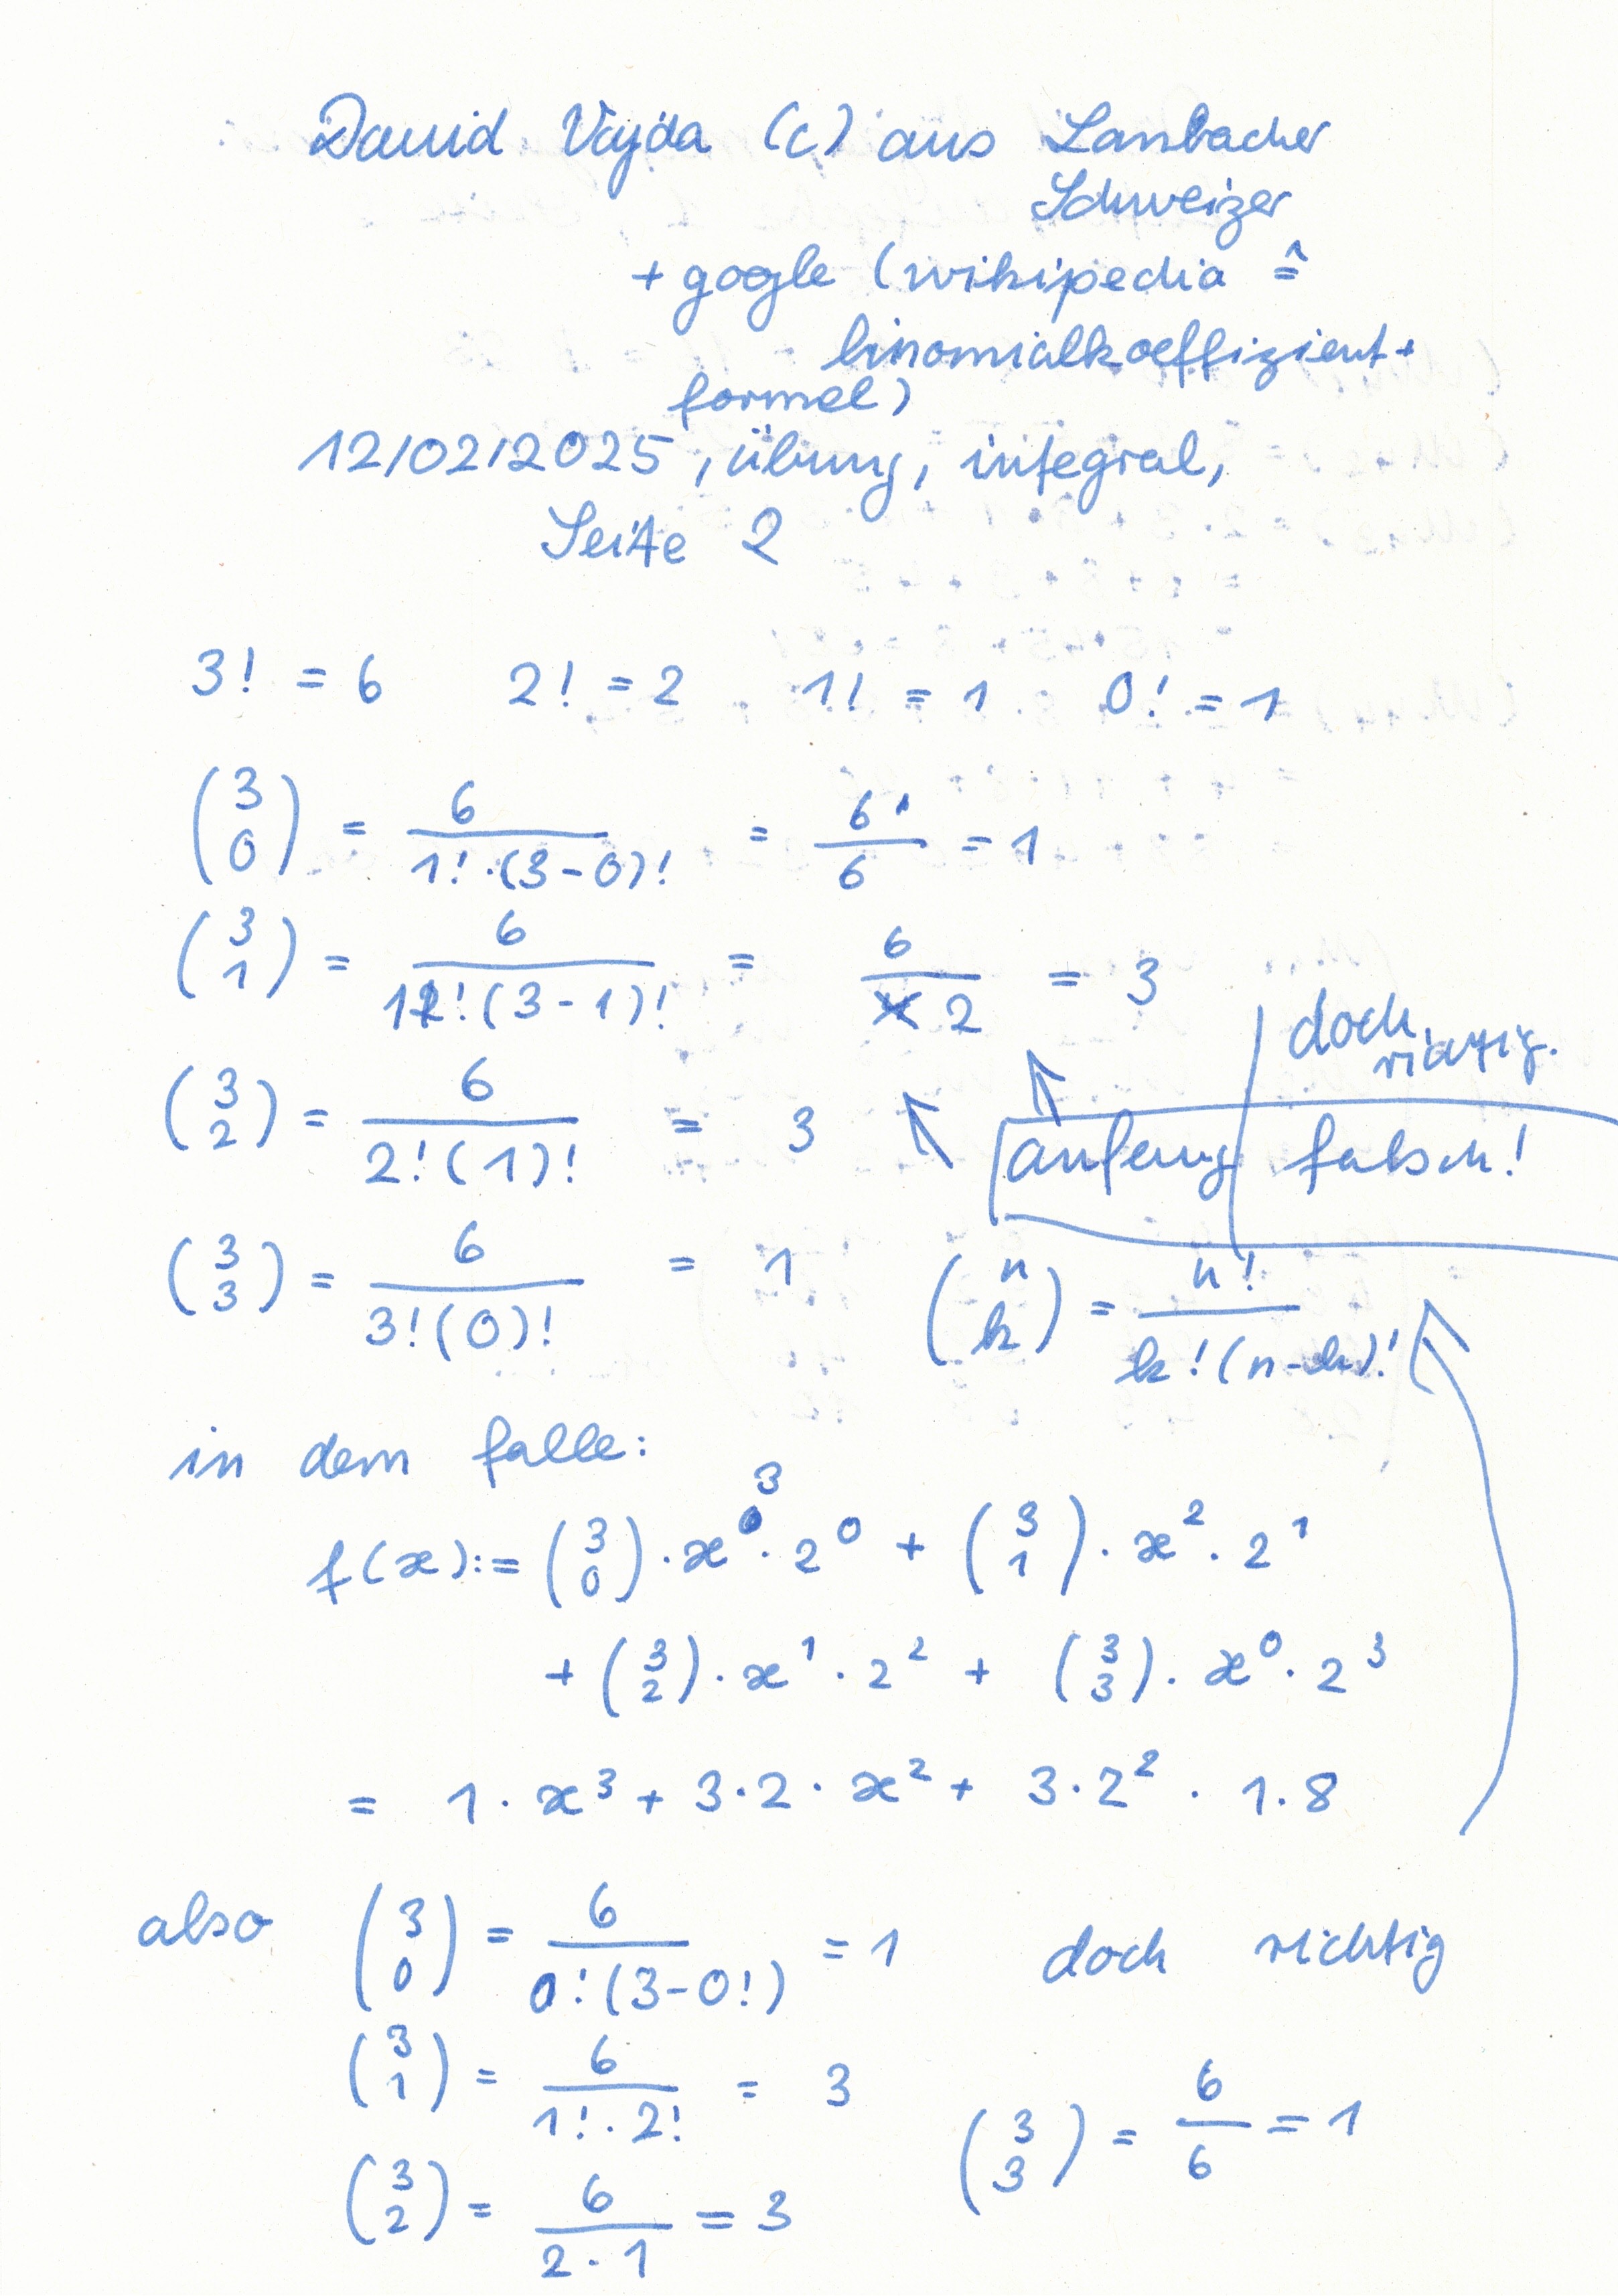 David Vajda (c) aus Lambacher
Schweizer
+ google (wikipedia ≙
binomialkoeffizient +
formel)
12/02/2025, übung, integral,
Seite 2
3! = 6 2! = 2 1! = 1 0! = 1
(3 0) = 6 / 1!·(3-0)! = 6 / 6 = 1
(3 1) = 6 / 1!(3-1)! = 6 / 2 = 3
doch
richtig.
(3 2) = 6 / 2!(1)! = 3
anfang falsch!
(3 3) = 6 / 3!(0)! = 1 (n k) = n! / k!(n-k)!
in dem falle:
f(x):= (3 0)·x³·2⁰ + (3 1)·x²·2¹
+ (3 2)·x¹·2² + (3 3)·x⁰·2³
= 1·x³ + 3·2·x² + 3·2² · 1·8
also (3 0) = 6 / 0!(3-0!) = 1 doch richtig
(3 1) = 6 / 1!·2! = 3
(3 3) = 6 / 6 = 1
(3 2) = 6 / 2·1 = 3